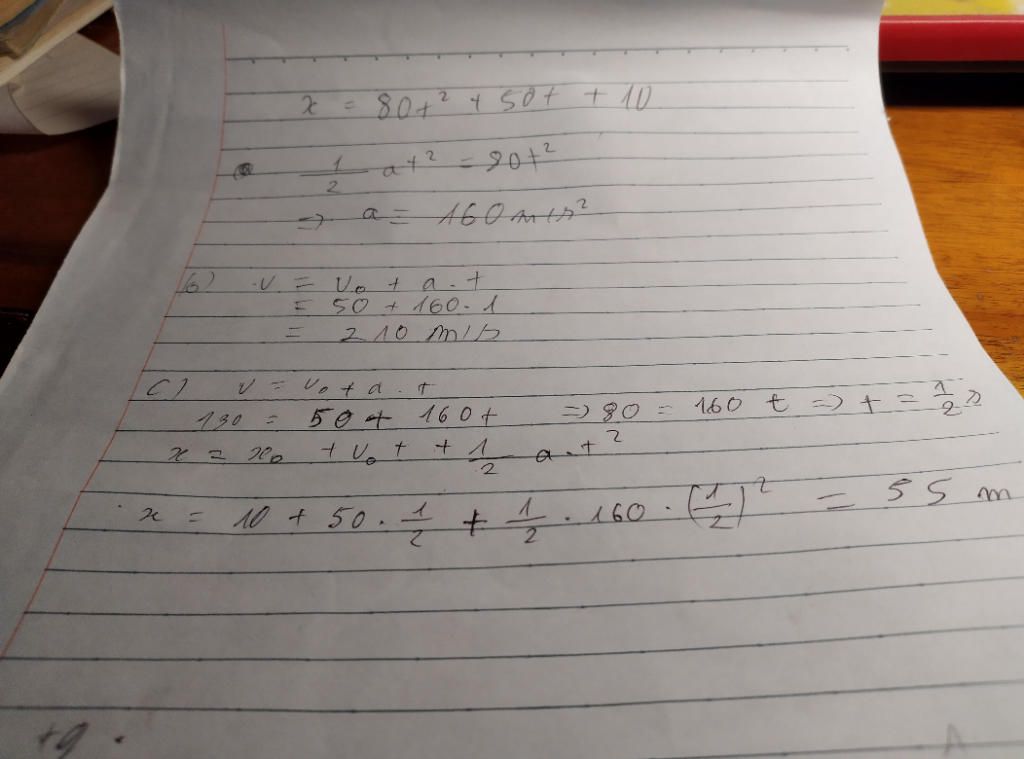 x = 80t² + 50t + 10
1/2 at² = 80t²
=> a = 160 m/s²
b) v = v₀ + a.t
= 50 + 160.1
= 210 m/s
c) v = v₀ + a.t
130 = 50 + 160t => 80 = 160 t => t = 1/2 s
x = x₀ + v₀t + 1/2 a.t²
x = 10 + 50 . 1/2 + 1/2 . 160 . (1/2)² = 55 m